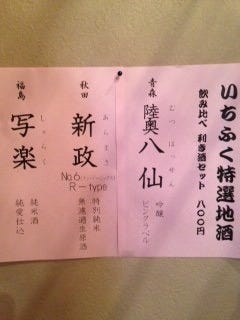 いちふく特選地酒
飲み比べ 利き酒セット 八〇〇円
青森
陸奥八仙
むつはっせん
吟醸
ピンクラベル
秋田
新政
あらまさ
No.6(ナンバーシックス)
R-type
特別純米
無濾過生原酒
福島
写楽
しゃらく
純米酒
純愛仕込